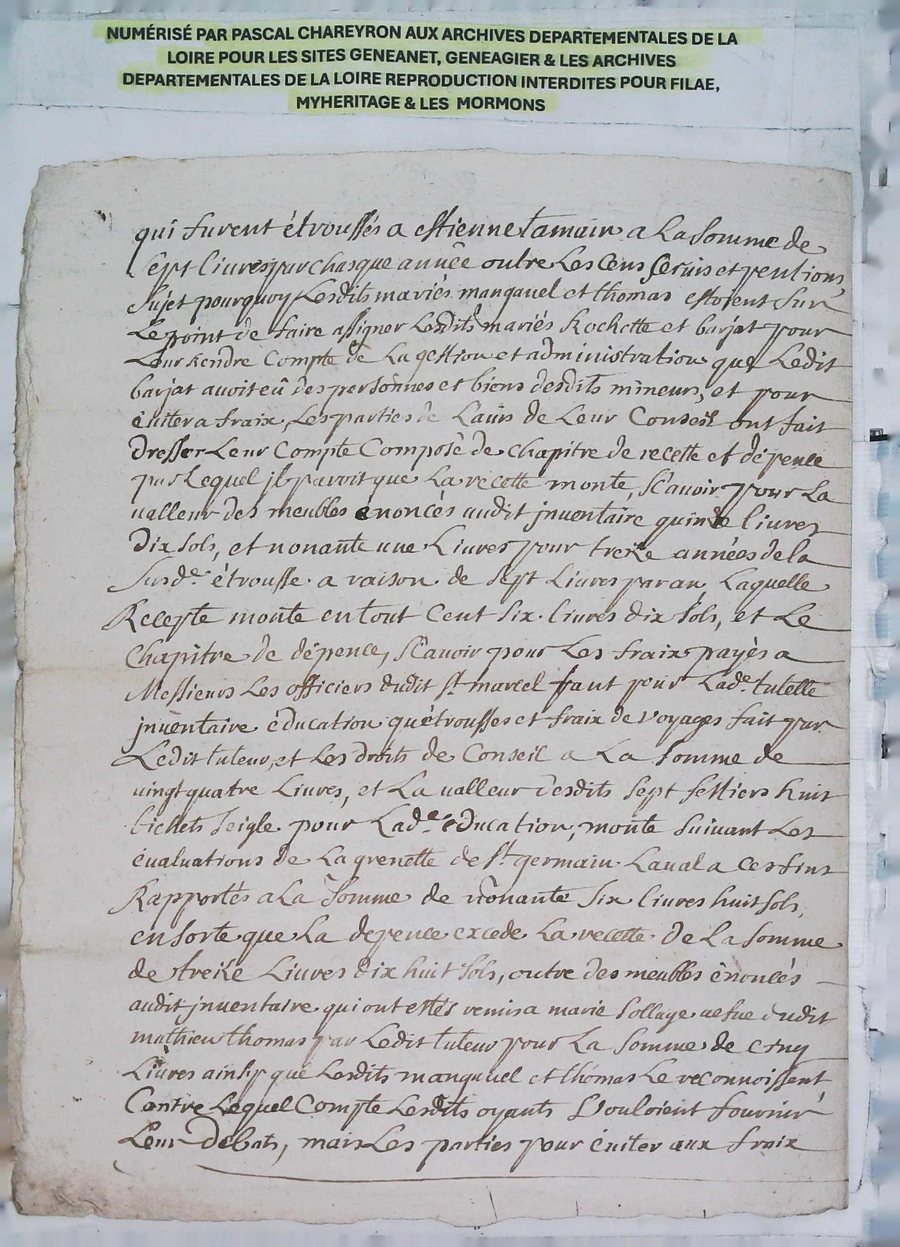 NUMÉRISÉ PAR PASCAL CHAREYRON AUX ARCHIVES DEPARTEMENTALES DE LA
LOIRE POUR LES SITES GENEANET, GENEAGIER & LES ARCHIVES
DEPARTEMENTALES DE LA LOIRE REPRODUCTION INTERDITES POUR FILAE,
MYHERITAGE & LES MORMONS
qui furent étroussés a estienne tamain a La Somme de
Sept livres par chasque année outre Les Cens Servis et pentions
Sujet pourquoy Lesdits mariés manqauel et thomas estoient Sur
Le point de faire assigner Lesdits mariés Rochette et barjat pour
Leur Rendre Compte de La gestion et administration que Ledit
barjat avoit eû des personnes et biens desdits mineurs, et pour
éviter a fraix, Les parties de L'avis de Leur Conseil ont fait
Dresser Leur Compte Composé de chapitre de recette et dépence
par Lequel jl paroit que La recette monte, Sçavoir pour La
valleur des meubles énoncés audit jnventaire quinze livres
Dix Sols, et nonante une Livres pour treize années de la
Susd.e étrousse a raison de Sept Livres par an, Laquelle
Recepte monte en tout Cent Six livres dix Sols, et Le
Chapitre de dépence, Sçavoir pour Les fraix payés a
Messieurs Les officiers dudit St. marcel tant pour Lad.e tutelle
jnventaire éducation qu'étrousses et fraix de voyages fait par
Ledit tuteur, et Les droits de Conseil a La Somme de
vingt quatre Livres, et La valleur desdits Sept Sestiers huit
bichets Seigle pour Lad.e éducation, monte Suivant Les
évaluations de La grenette de St. germain Laval a Ces fins
Rapportés a La Somme de nonante Six livres huit Sols,
en Sorte que La depence excede La recette de La Somme
de treize Livres dix huit Sols, outre des meubles énoncés
audit jnventaire qui ont estés remis a marie Sollage vefve dudit
mathieu thomas par Ledit tuteur pour La Somme de Cinq
Livres ainsy que Lesdits manqauel et thomas Le reconnoissent
Contre Lequel Compte Lesdits oyants Vouloient fournir
Leur Debats, mais Les parties pour éviter aux fraix